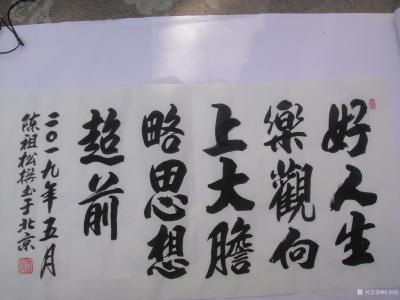 好人生
樂觀向
上大膽
略思想
超前
二〇一九年五月
陈祖松撰书于北京